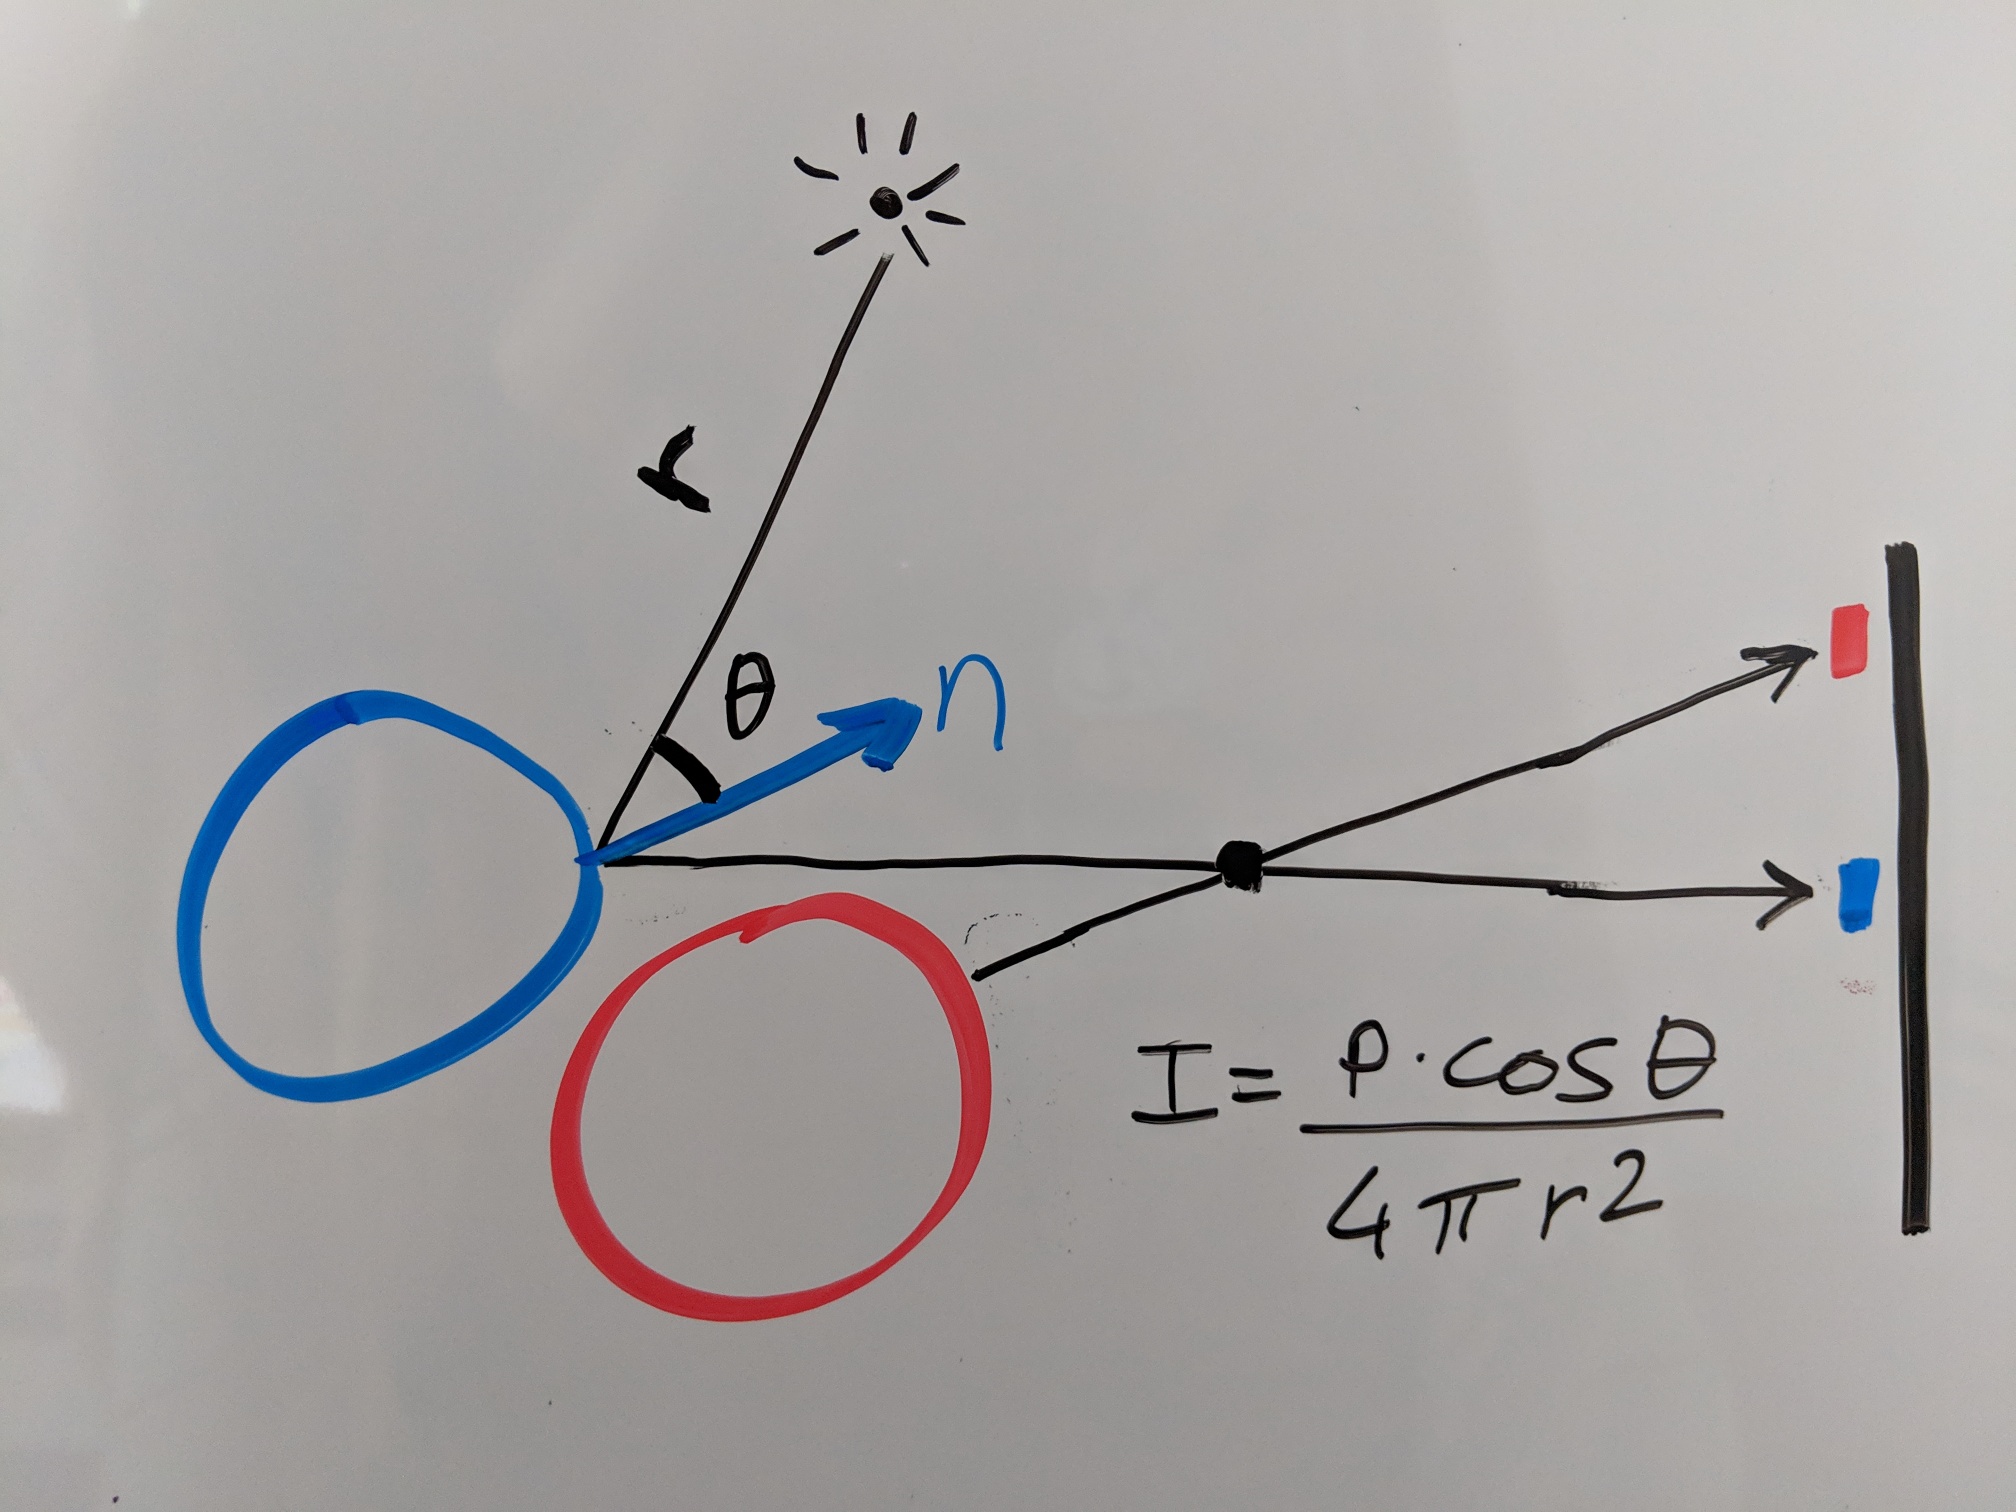 r
θ
n
I = P·cosθ / 4πr²